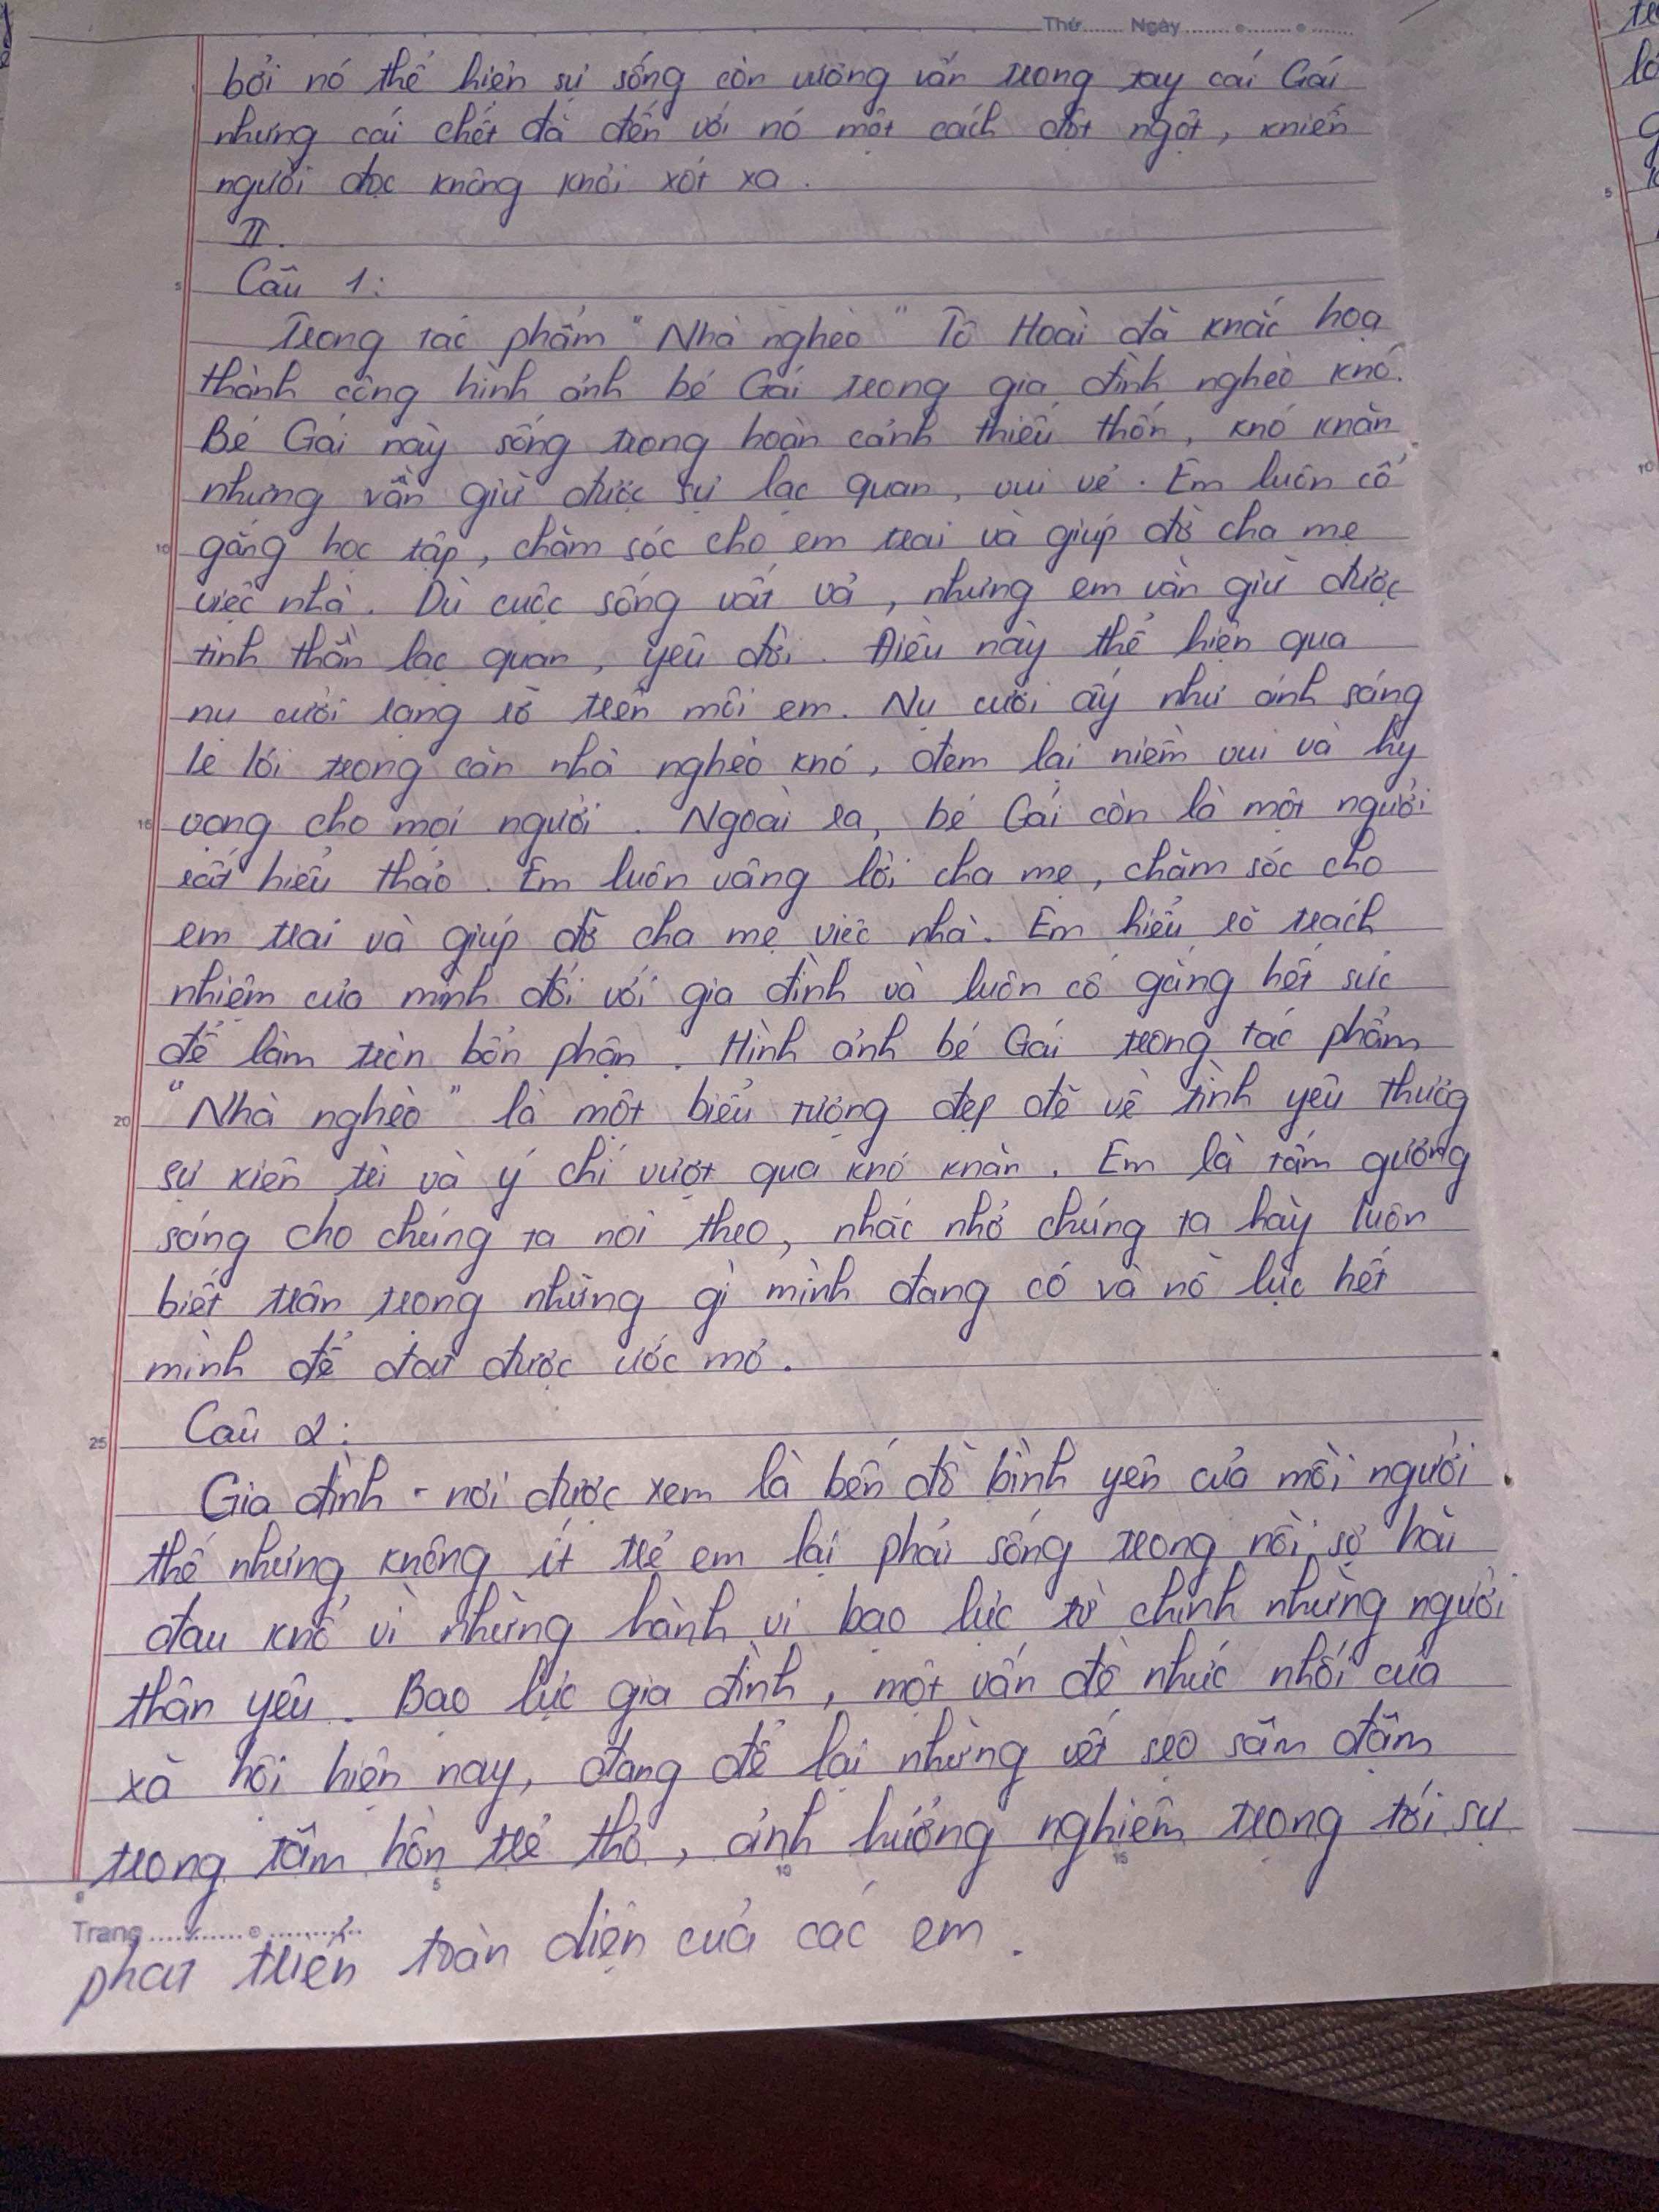 Thứ....... Ngày....... ....... .......
bởi nó thể hiện sự sống còn vương vấn trong tay cái Gái
nhưng cái chết đã đến với nó một cách đột ngột, khiến
người đọc không khỏi xót xa.
II.
Câu 1:
Trong tác phẩm "Nhà nghèo" Tô Hoài đã khắc họa
thành công hình ảnh bé Gái trong gia đình nghèo khó.
Bé Gái này sống trong hoàn cảnh thiếu thốn, khó khăn
nhưng vẫn giữ được sự lạc quan, vui vẻ. Em luôn cố
gắng học tập, chăm sóc cho em trai và giúp đỡ cha mẹ
việc nhà. Dù cuộc sống vất vả, nhưng em vẫn giữ được
tinh thần lạc quan, yêu đời. Điều này thể hiện qua
nụ cười rạng rỡ trên môi em. Nụ cười ấy như ánh sáng
le lói trong căn nhà nghèo khó, đem lại niềm vui và hy
vọng cho mọi người. Ngoài ra, bé Gái còn là một người
rất hiếu thảo. Em luôn vâng lời cha mẹ, chăm sóc cho
em trai và giúp đỡ cha mẹ việc nhà. Em hiểu rõ trách
nhiệm của mình đối với gia đình và luôn cố gắng hết sức
để làm tròn bổn phận. Hình ảnh bé Gái trong tác phẩm
"Nhà nghèo" là một biểu tượng đẹp đẽ về tình yêu thương
sự kiên trì và ý chí vượt qua khó khăn. Em là tấm gương
sáng cho chúng ta noi theo, nhắc nhở chúng ta hãy luôn
biết trân trọng những gì mình đang có và nỗ lực hết
mình để đạt được ước mơ.
Câu 2:
Gia đình - nơi được xem là bến đỗ bình yên của mỗi người
thế nhưng không ít trẻ em lại phải sống trong nỗi sợ hãi
đau khổ vì những hành vi bạo lực từ chính những người
thân yêu. Bạo lực gia đình, một vấn đề nhức nhối của
xã hội hiện nay, đang để lại những vết sẹo sâu đậm
trong tâm hồn trẻ thơ, ảnh hưởng nghiêm trọng tới sự
Trang
phát triển toàn diện của các em.